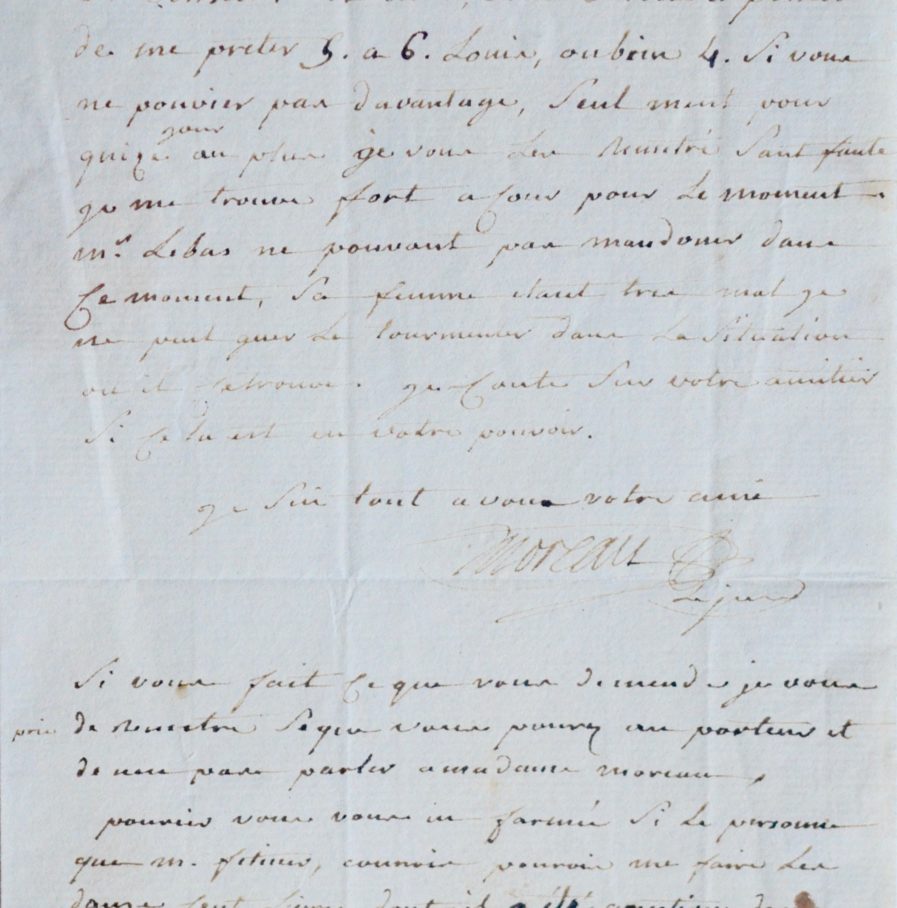 de me preter 5. a 6. Louis, oubien 4. Si vous
ne pouvier pas davantage, Seul ment pour
jour
quize au plus je vous Les Remetré Sant faute
ge me trouve fort a Cour pour Le moment
mr. Lebas ne pouvant pas man doner dans
Ce moment, Sa femme etant tres mal ge
ne peut guer Le tourmenter dans La Situation
ou il Setrouve. ge Conte Sur votre amitier
Si Cela est en votre pouvoir.
ge Sui tout a vous votre ami
Moreau
Le jeune
Si vous fait Ce que vous demende je vous
prie de Remetre Seque vous pourez au porteur et
de nen pas parler amadame moreau,
pourier vous vous in formé Si Le personne
que m. connoi pouroi me faire Les